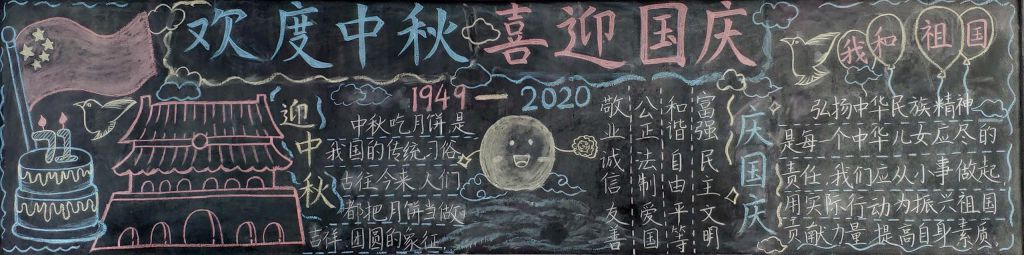 欢度中秋 喜迎国庆
71
迎中秋
1949—2020
中秋吃月饼是
我国的传统习俗
古往今来,人们
都把月饼当做
吉祥、团圆的象征。
富强 民主 文明
和谐 自由 平等
公正 法制 爱国
敬业 诚信 友善
庆国庆
我和祖国
弘扬中华民族精神
是每一个中华儿女应尽的
责任,我们应从小事做起
用实际行动为振兴祖国
贡献力量,提高自身素质。